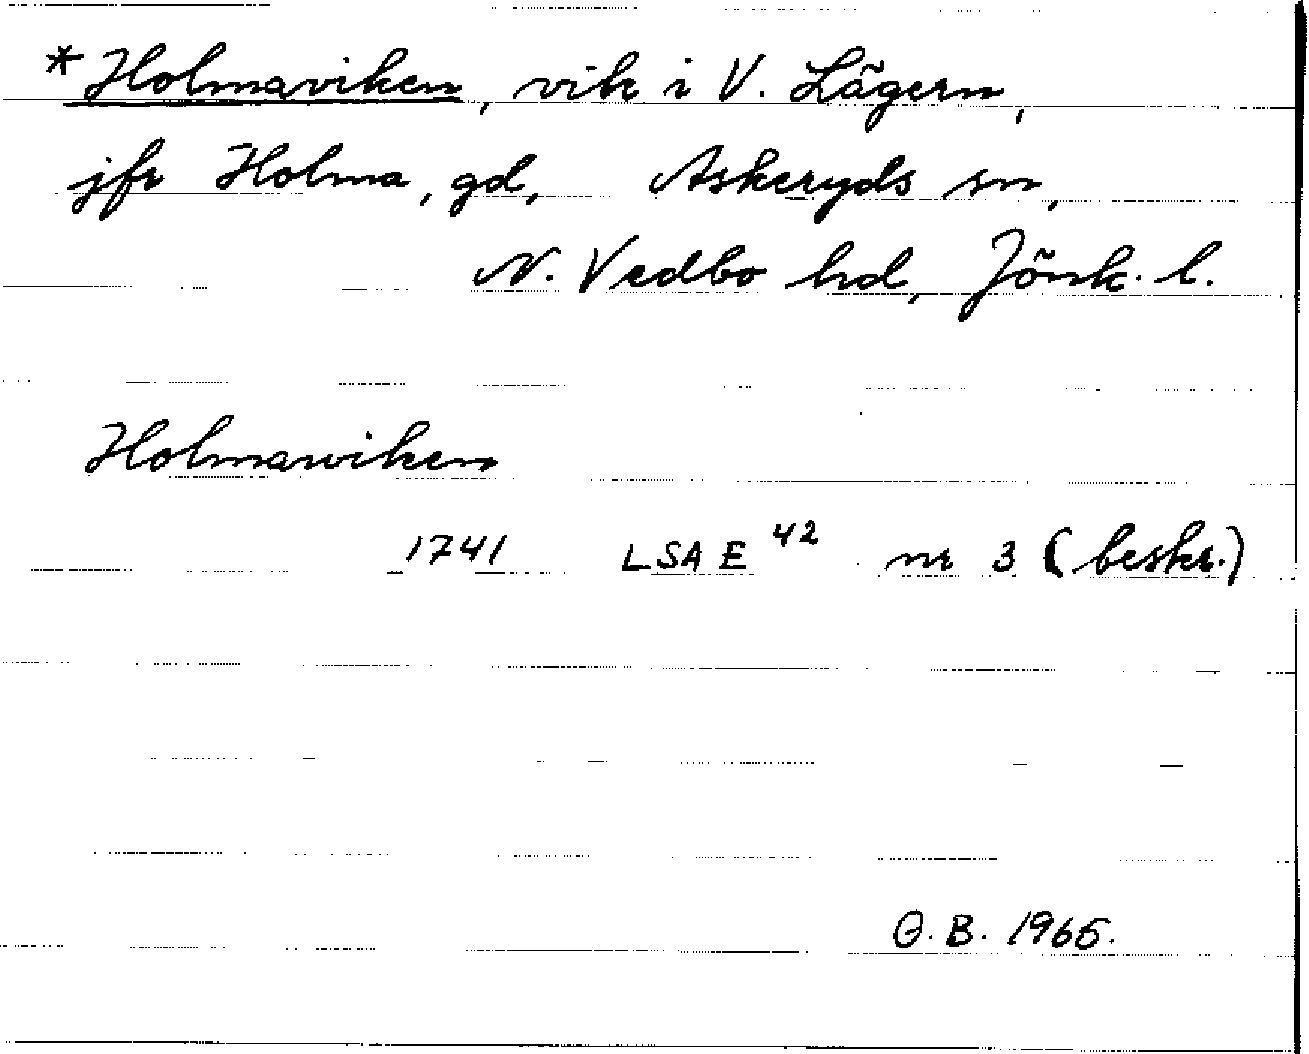 *Holmaviken, vik i V. Lägern,
jfr Holma, gd, Askeryds sn,
N. Vedbo hd, Jönk. l.
Holmawiken
1741 LSA E 42 nr 3 (beskr.)
O.B. 1965.